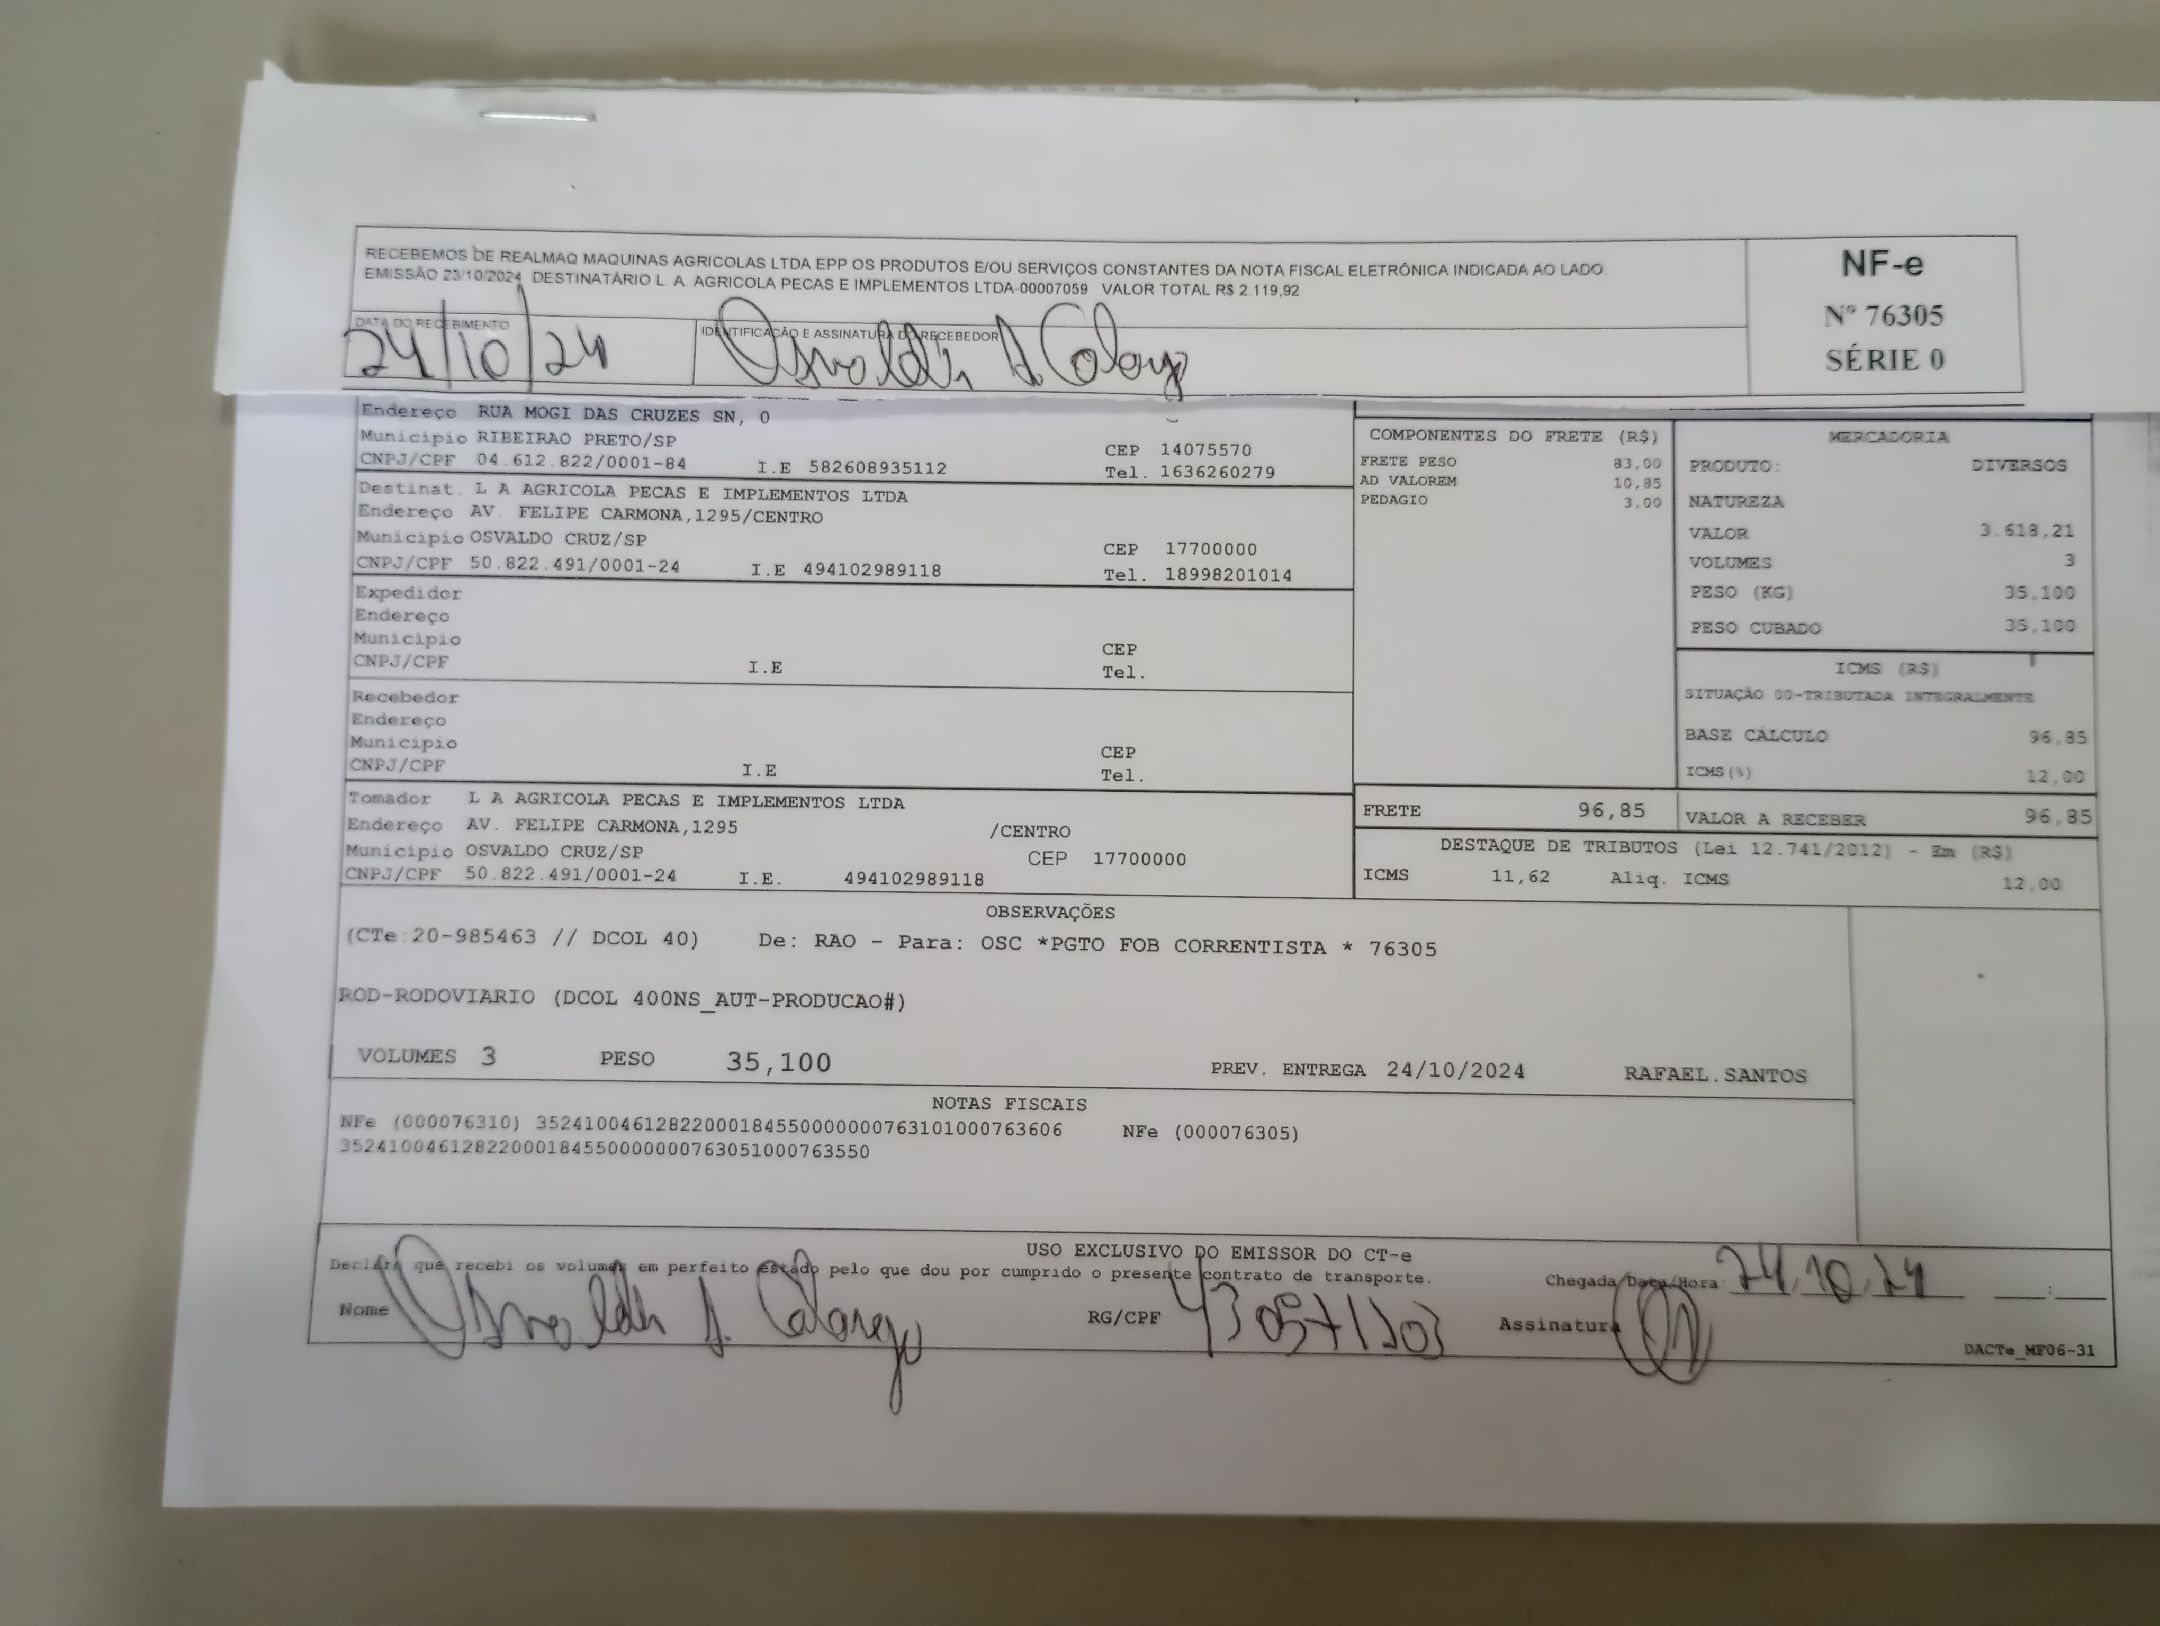 RECEBEMOS DE REALMAQ MAQUINAS AGRICOLAS LTDA EPP OS PRODUTOS E/OU SERVIÇOS CONSTANTES DA NOTA FISCAL ELETRÔNICA INDICADA AO LADO.
EMISSÃO 23/10/2024 DESTINATÁRIO L. A. AGRICOLA PECAS E IMPLEMENTOS LTDA-00007059 VALOR TOTAL R$ 2.119,92
DATA DO RECEBIMENTO
24/10/24
IDENTIFICAÇÃO E ASSINATURA DO RECEBEDOR
NF-e
Nº 76305
SÉRIE 0
Endereço RUA MOGI DAS CRUZES SN, 0
Municipio RIBEIRAO PRETO/SP CEP 14075570
CNPJ/CPF 04.612.822/0001-84 I.E 582608935112 Tel. 1636260279
Destinat. L A AGRICOLA PECAS E IMPLEMENTOS LTDA
Endereço AV. FELIPE CARMONA,1295/CENTRO
Municipio OSVALDO CRUZ/SP CEP 17700000
CNPJ/CPF 50.822.491/0001-24 I.E 494102989118 Tel. 18998201014
Expedidor
Endereço
Municipio CEP
CNPJ/CPF I.E Tel.
Recebedor
Endereço
Municipio CEP
CNPJ/CPF I.E Tel.
Tomador L A AGRICOLA PECAS E IMPLEMENTOS LTDA
Endereço AV. FELIPE CARMONA,1295 /CENTRO
Municipio OSVALDO CRUZ/SP CEP 17700000
CNPJ/CPF 50.822.491/0001-24 I.E. 494102989118
COMPONENTES DO FRETE (R$)
FRETE PESO 83,00
AD VALOREM 10,85
PEDAGIO 3,00
MERCADORIA
PRODUTO: DIVERSOS
NATUREZA
VALOR 3.618,21
VOLUMES 3
PESO (KG) 35,100
PESO CUBADO 35,100
ICMS (R$)
SITUAÇÃO 00-TRIBUTADA INTEGRALMENTE
BASE CÁLCULO 96,85
ICMS(%) 12,00
FRETE 96,85 VALOR A RECEBER 96,85
DESTAQUE DE TRIBUTOS (Lei 12.741/2012) - Em (R$)
ICMS 11,62 Aliq. ICMS 12,00
OBSERVAÇÕES
(CTe:20-985463 // DCOL 40) De: RAO - Para: OSC *PGTO FOB CORRENTISTA * 76305
ROD-RODOVIARIO (DCOL 400NS_AUT-PRODUCAO#)
VOLUMES 3 PESO 35,100 PREV. ENTREGA 24/10/2024 RAFAEL.SANTOS
NOTAS FISCAIS
NFe (000076310) 35241004612822000184550000000763101000763606 NFe (000076305)
35241004612822000184550000000763051000763550
USO EXCLUSIVO DO EMISSOR DO CT-e
Declaro que recebi os volumes em perfeito estado pelo que dou por cumprido o presente contrato de transporte.
Chegada/Data/Hora: 24.10.24 ___:___
Nome RG/CPF Assinatura
DACTe_MF06-31